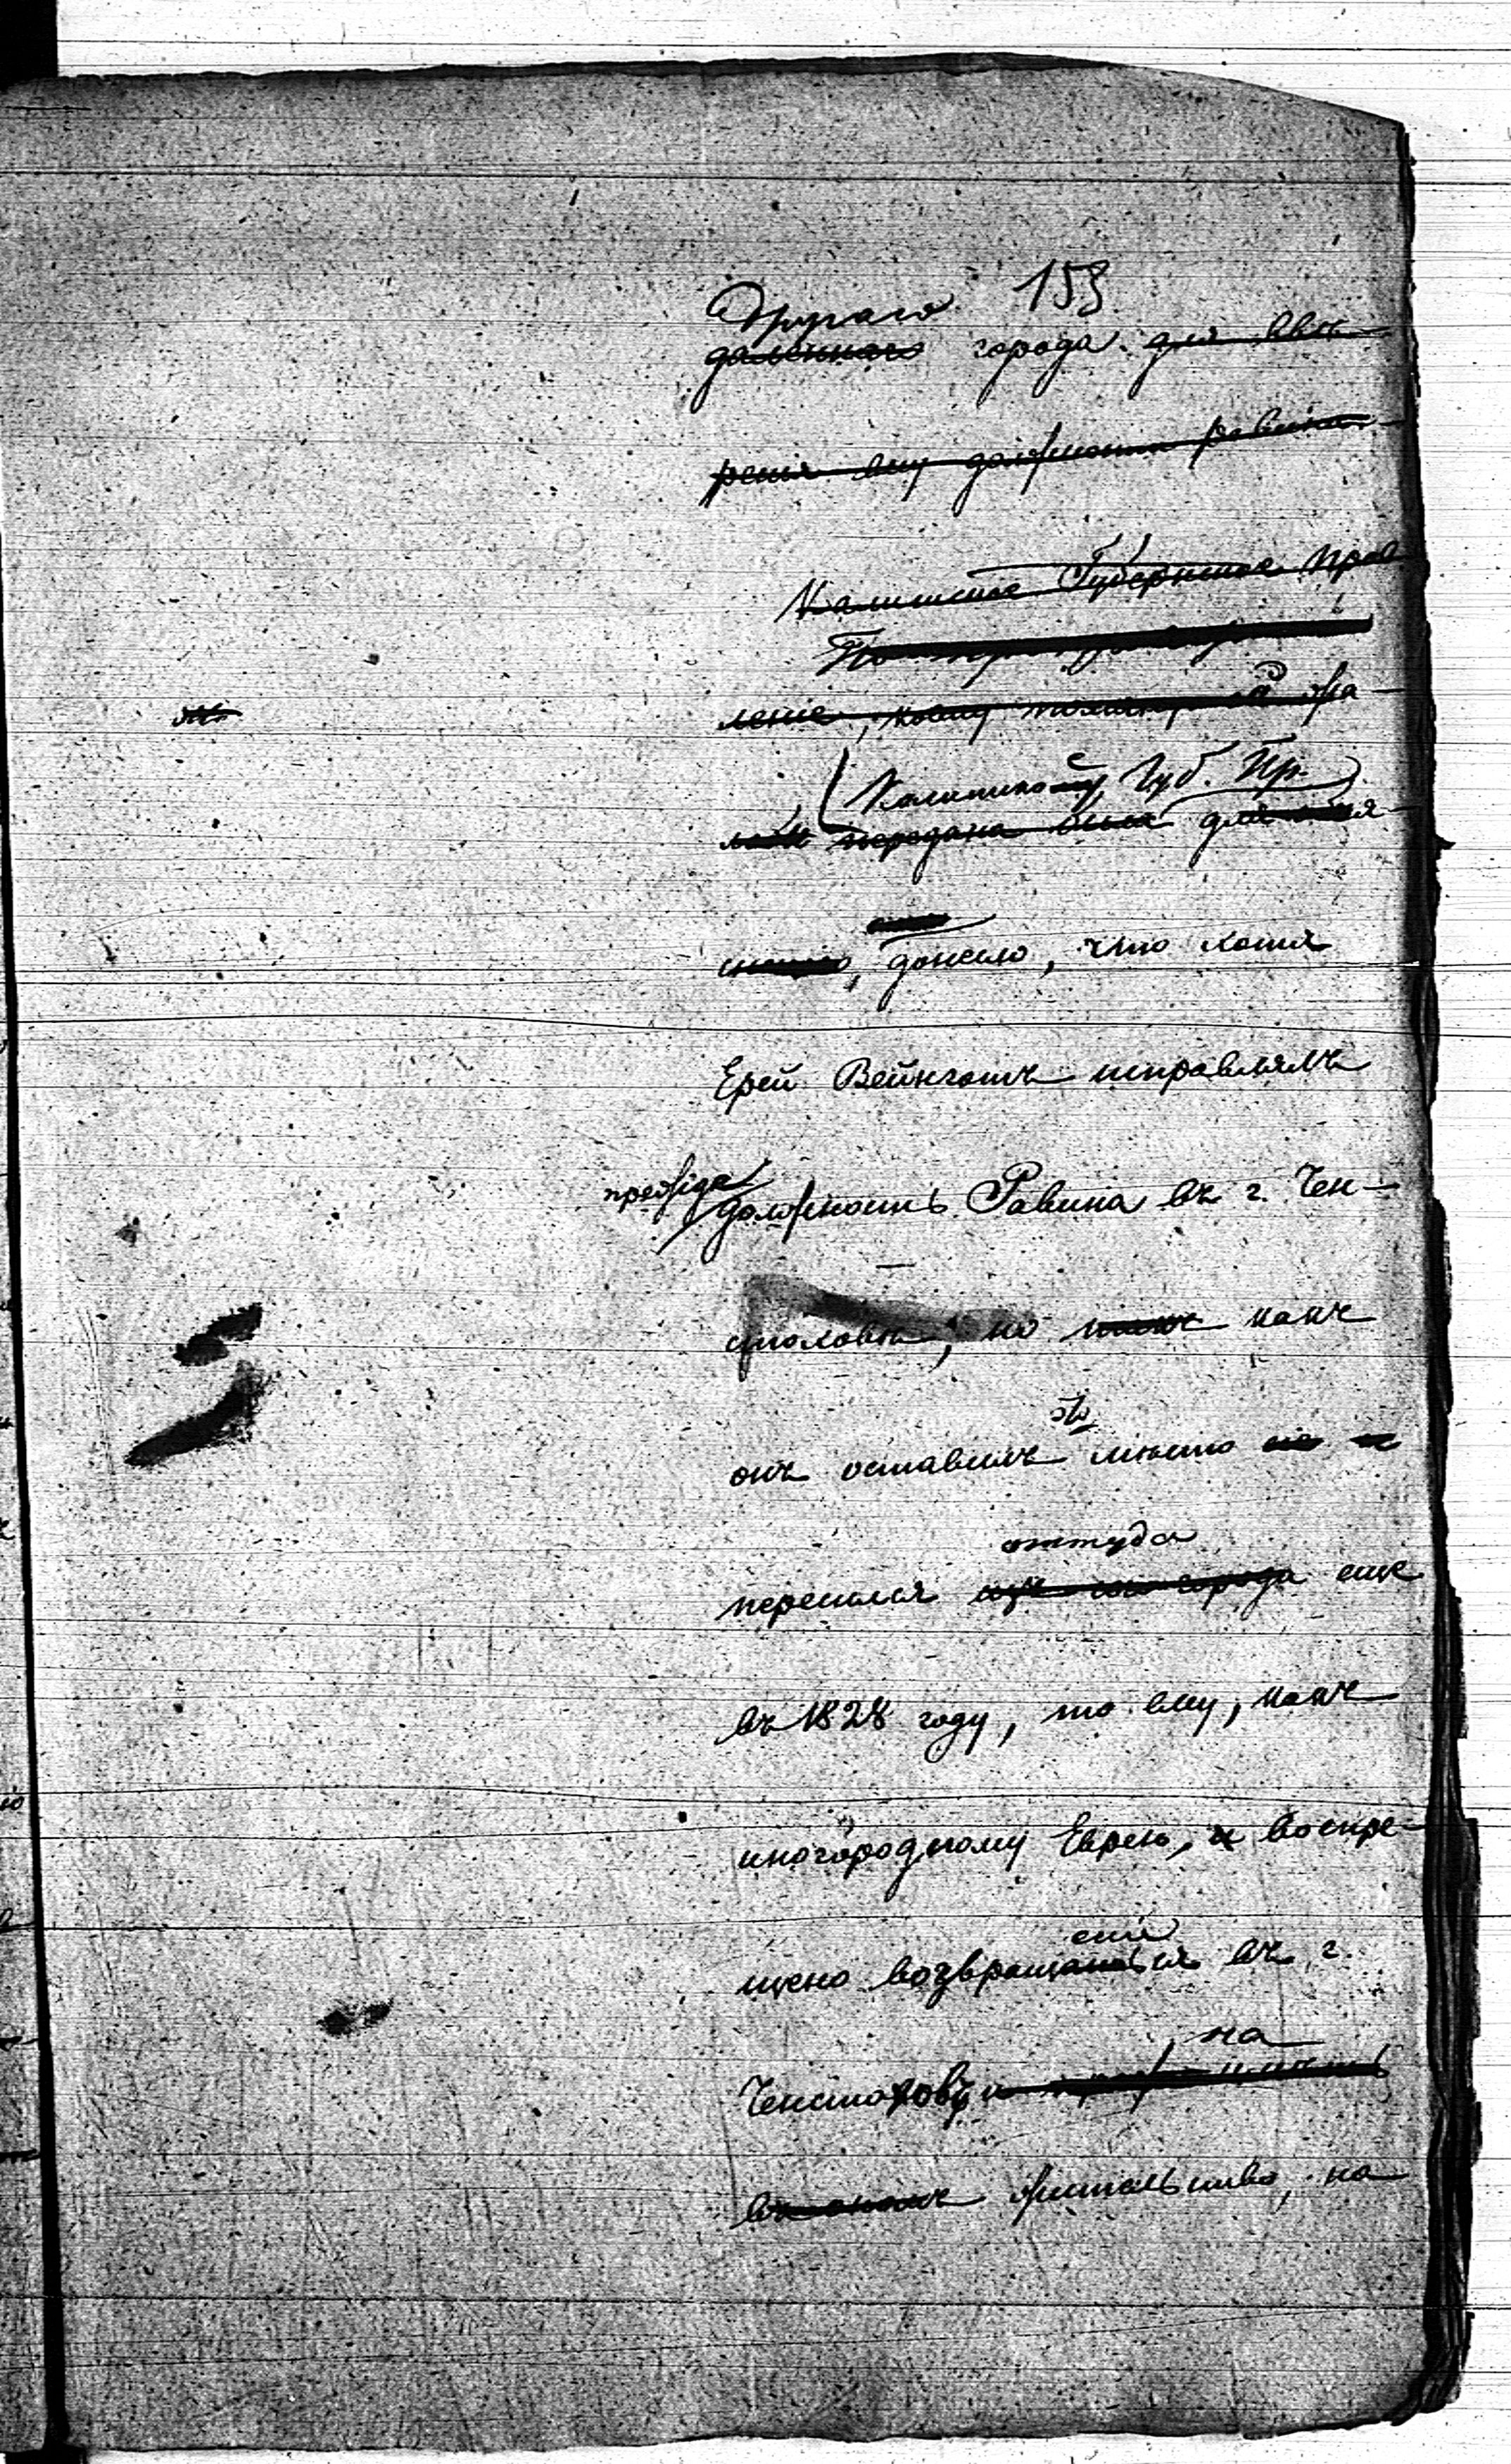 153
другаго
даленнаго города для ввѣ-
ренія ему должности равина
Калишское Губернское Прав
леніе, коему жа-
(Калишское Губ. Пр.)
передана была для
, донесло, что хотя
Ерей Вейнготъ исправлялъ
прежде
должность Равина въ г. Чен-
стоховѣ, но какъ
это
онъ оставилъ мѣсто
оттуда
переселся города еще
въ 1828 году, то ему, какъ
иногородному Еврею, и воспре-
щено возвращаться въ г.
на
Ченстоховъ
въ ономъ жительство, на